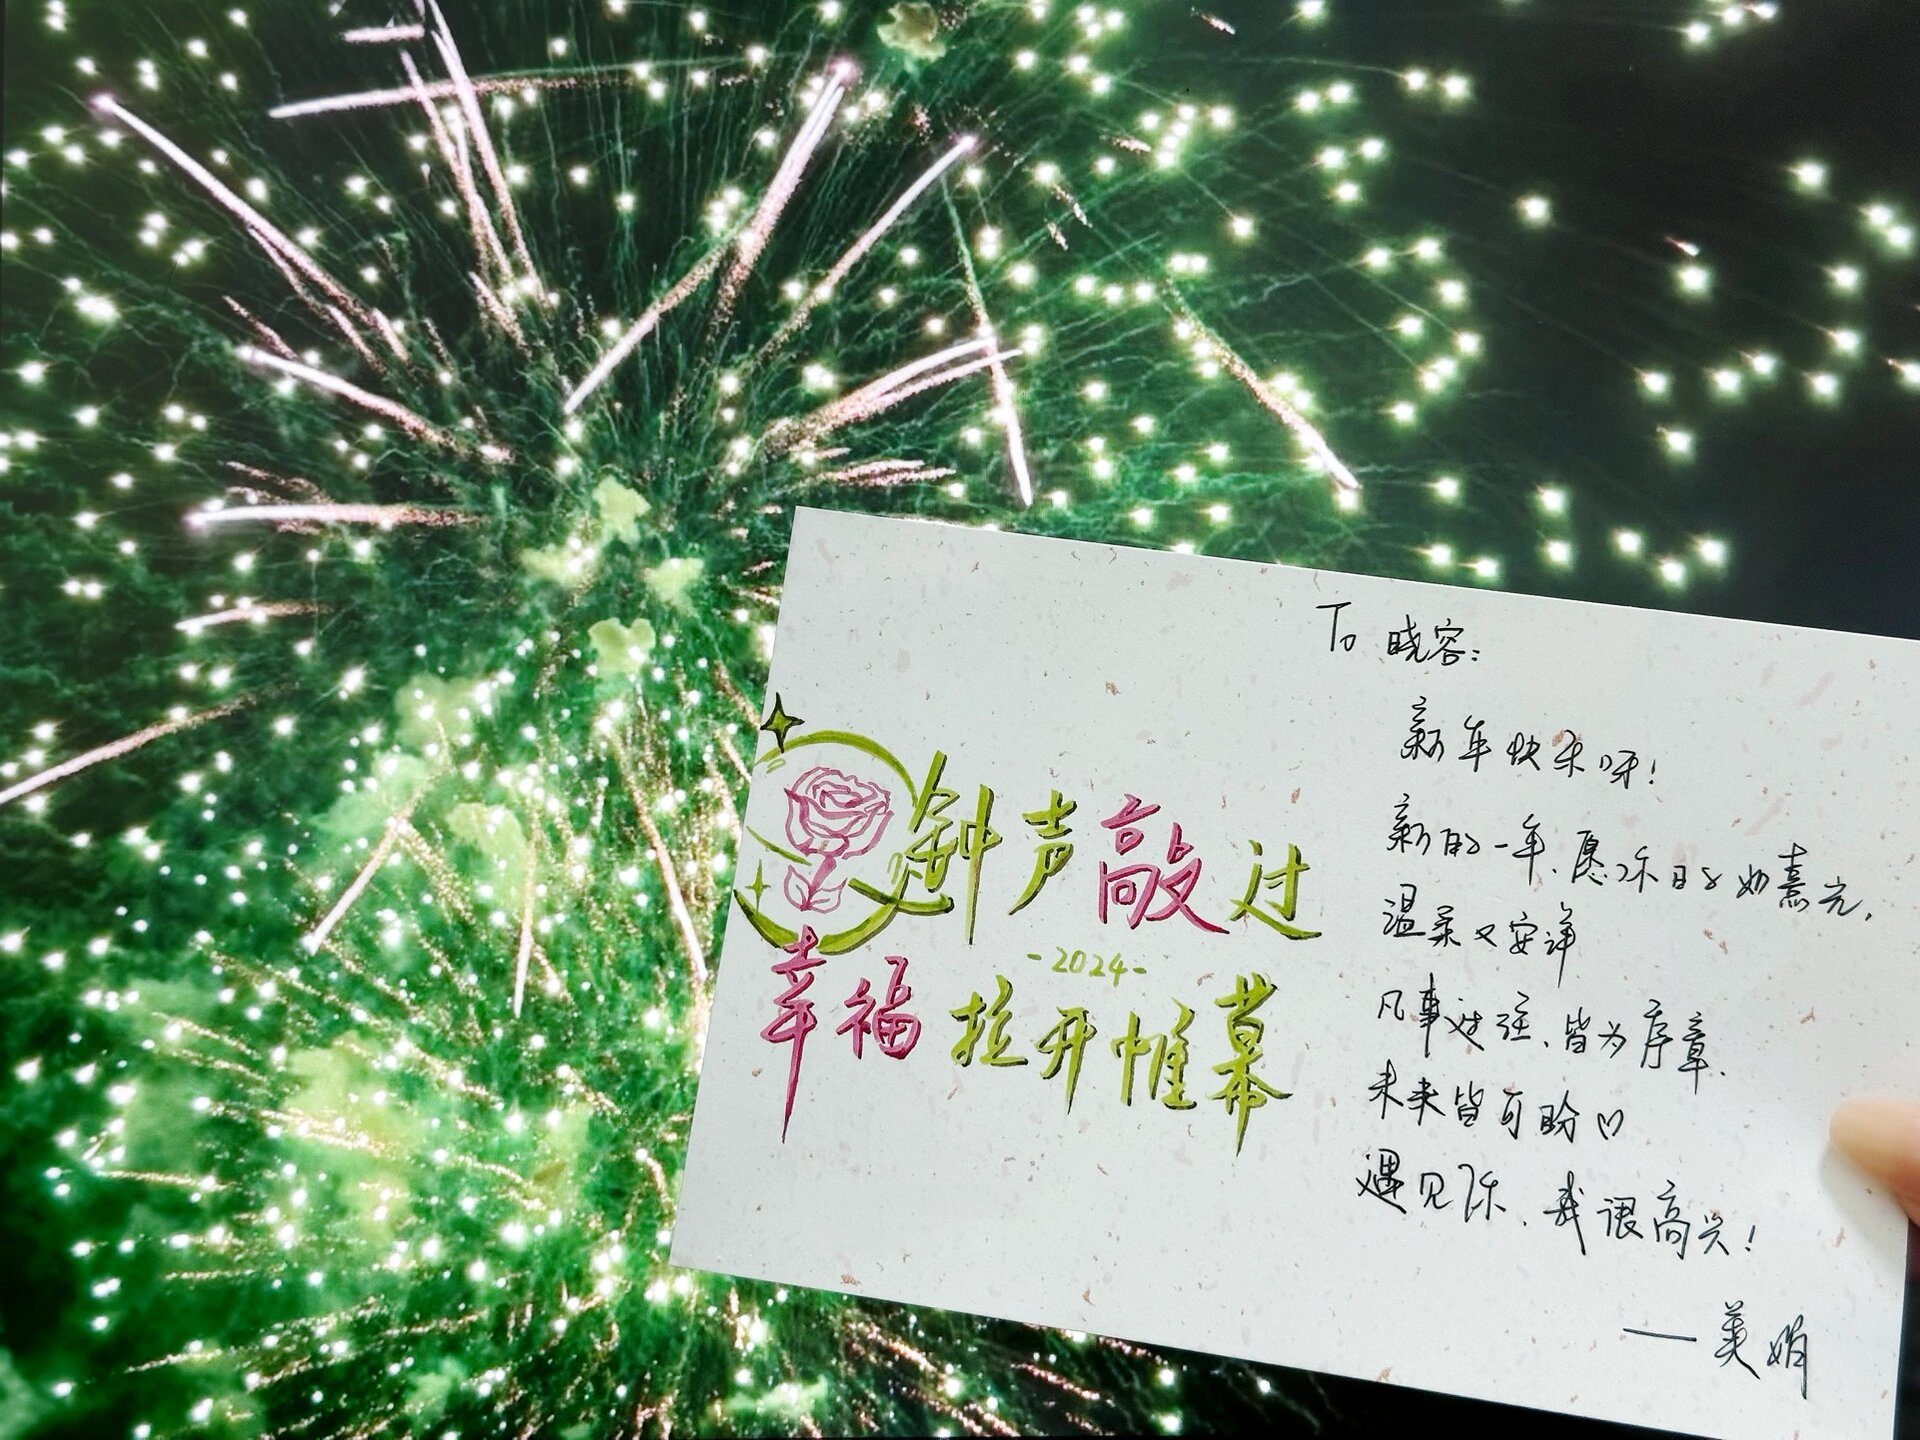 钟声敲过
-2024-
幸福拉开帷幕
To 晓容:
新年快乐呀!
新的一年,愿你日子如熹光,
温柔又安详
凡事过往,皆为序章,
未来皆可盼
遇见你,我很高兴!
——美娟